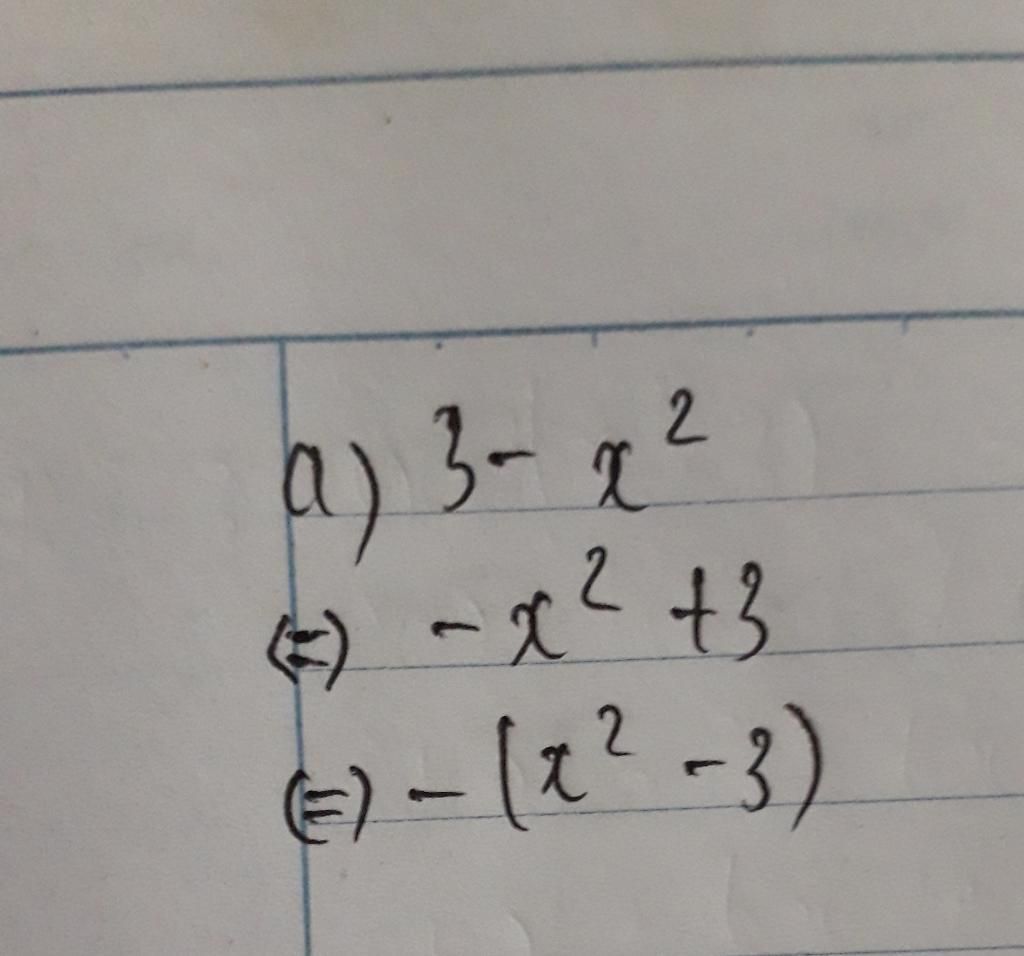 a) 3 - x²
(=) - x² + 3
(=) - (x² - 3)